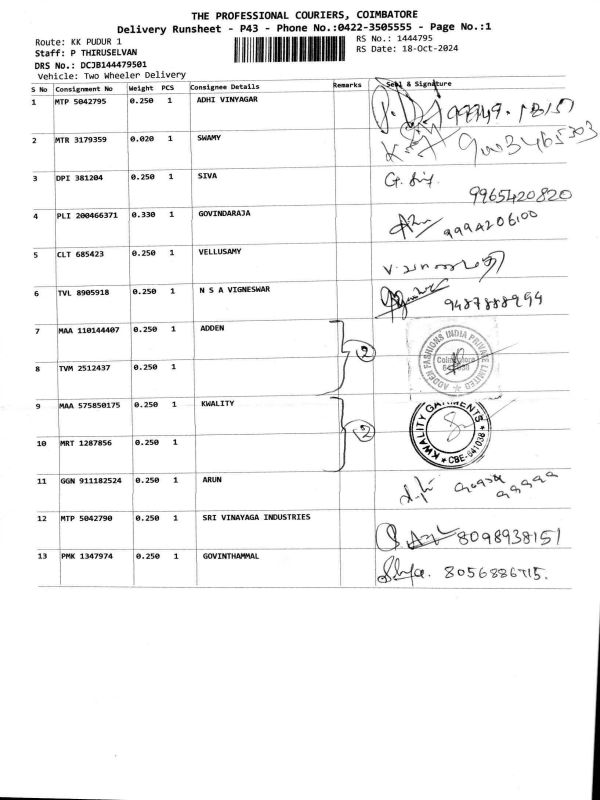 THE PROFESSIONAL COURIERS, COIMBATORE
Delivery Runsheet - P43 - Phone No.:0422-3505555 - Page No.:1
Route: KK PUDUR 1
RS No.: 1444795
Staff: P THIRUSELVAN
RS Date: 18-Oct-2024
DRS No.: DCJB144479501
Vehicle: Two Wheeler Delivery
S No Consignment No Weight PCS Consignee Details Remarks Seal & Signature
1 MTP 5042795 0.250 1 ADHI VINYAGAR
2 MTR 3179359 0.020 1 SWAMY
3 DPI 381204 0.250 1 SIVA G. Siv.
9965420820
4 PLI 200466371 0.330 1 GOVINDARAJA 9994206100
5 CLT 685423 0.250 1 VELLUSAMY
6 TVL 8905918 0.250 1 N S A VIGNESWAR 9487888994
7 MAA 110144407 0.250 1 ADDEN
2
ADDEN FASHIONS INDIA PRIVATE LIMITED
Coimbatore
8 TVM 2512437 0.250 1
9 MAA 575850175 0.250 1 KWALITY
2
KWALITY GARMENTS
* CBE-641038 *
10 MRT 1287856 0.250 1
11 GGN 911182524 0.250 1 ARUN
12 MTP 5042790 0.250 1 SRI VINAYAGA INDUSTRIES 8098938151
13 PMK 1347974 0.250 1 GOVINTHAMMAL 8056886715.